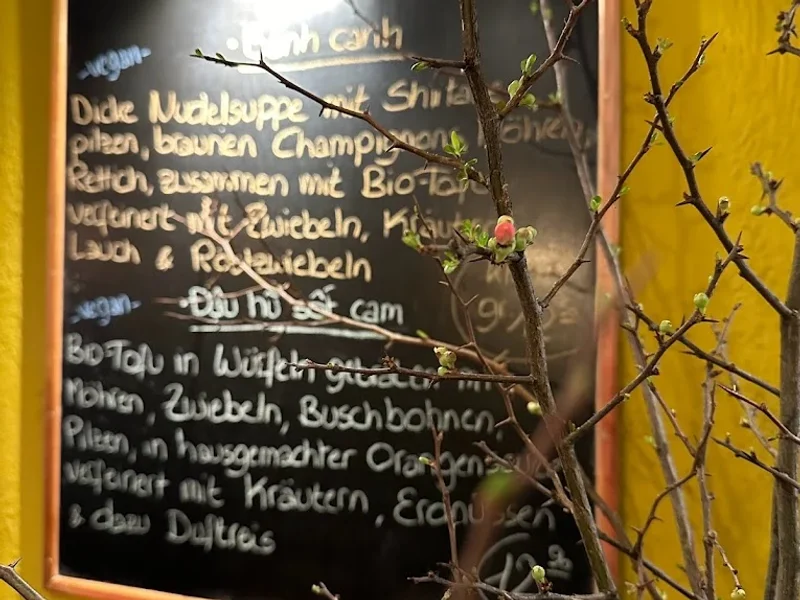 Bánh canh
-vegan-
Dicke Nudelsuppe mit Shiita
pilzen, braunen Champignon, Möhren,
Rettich, zusammen mit Bio-Tofu
verfeinert mit Zwiebeln, Kräute
Lauch & Röstzwiebeln
-vegan-
Đậu hũ sốt cam
Bio-Tofu in Würfeln gebacken mit
Möhren, Zwiebeln, Buschbohnen,
Pilzen, in hausgemachter Orangensauce
verfeinert mit Kräutern, Erdnüssen
& dazu Duftreis